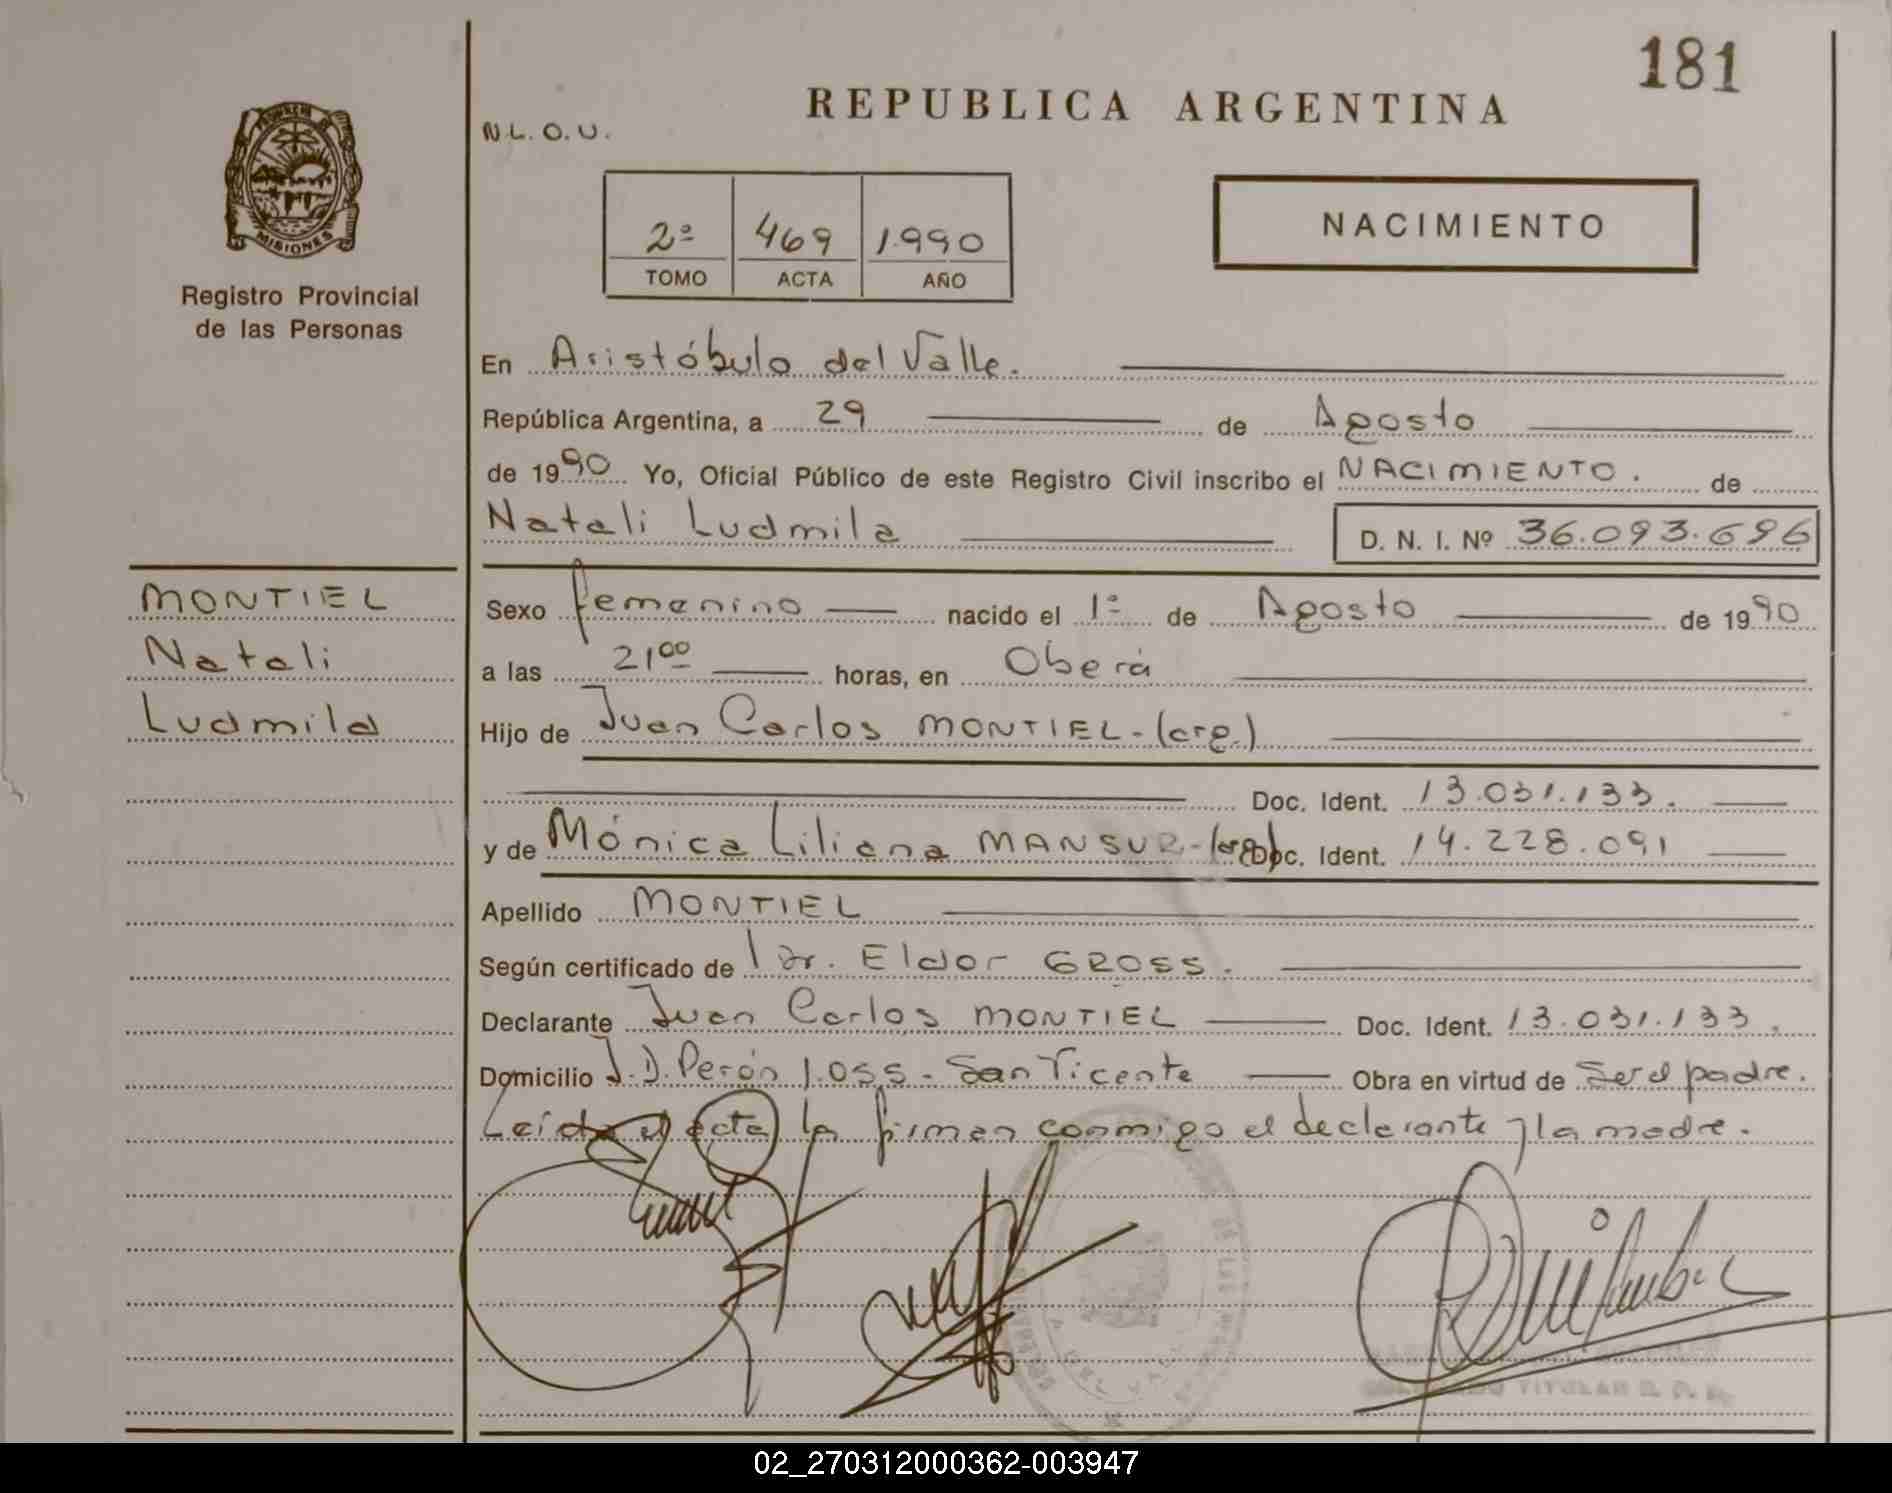 181
REPUBLICA ARGENTINA
N.L.O.U.
MISIONES
Registro Provincial
de las Personas
2º 469 1.990
TOMO ACTA AÑO
NACIMIENTO
En Aristóbulo del Valle.
República Argentina, a 29 de Agosto
de 1990 Yo, Oficial Público de este Registro Civil inscribo el NACIMIENTO. de
Natali Ludmila D. N. I. Nº 36.093.696
MONTIEL
Natali
Ludmila
Sexo femenino nacido el 1º de Agosto de 1990
a las 21⁰⁰ horas, en Oberá
Hijo de Juan Carlos MONTIEL-(arg.)
Doc. Ident. 13.031.133.
y de Mónica Liliana MANSUR-(arg) Doc. Ident. 14.228.091
Apellido MONTIEL
Según certificado de Dr. Eldor GROSS.
Declarante Juan Carlos MONTIEL Doc. Ident. 13.031.133.
Domicilio J.D.Perón 1.055- San Vicente Obra en virtud de Ser el padre.
Leída el acta la firman conmigo el declarante y la madre.
TITULAR
02_270312000362-003947